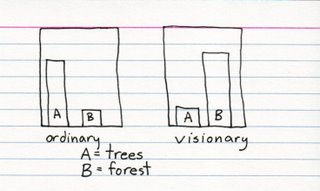 A B A B
ordinary visionary
A = trees
B = forest